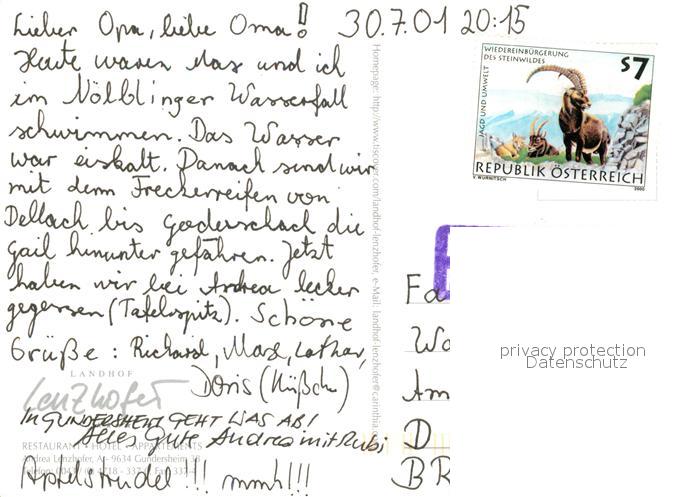 Lieber Opa, liebe Oma!
30.7.01 20:15
Heute waren Max und ich
im Nölblinger Wasserfall
schwimmen. Das Wasser
war eiskalt. Danach sind wir
mit dem Treckerreifen von
Dellach bis Goderschach die
Gail hinunter gefahren. Jetzt
haben wir bei Andrea lecker
gegessen (Tafelspitz). Schöne
Grüße: Richard, Max, Lothar,
Doris (Küßchen)
LANDHOF
Lenzhofer
IN GUNDERSHEIM GEHT WAS AB!
Alles Gute Andrea mit Rubi
RESTAURANT · HOTEL · APPARTEMENTS
Andrea Lenzhofer, A - 9634 Gundersheim 38
Telefon: 0043 / 0 4718 - 337 Fax 337-4
Apfelstrudel !!! mmh!!!
Homepage: http://www.tiscover.com/landhof-lenzhofer, e-Mail: landhof-lenzhofer@carinthia.
WIEDEREINBÜRGERUNG
DES STEINWILDES
S7
JAGD UND UMWELT
REPUBLIK ÖSTERREICH
V. WURNITSCH
2000
Fa
Wo
Am
D
BR
privacy protection
Datenschutz